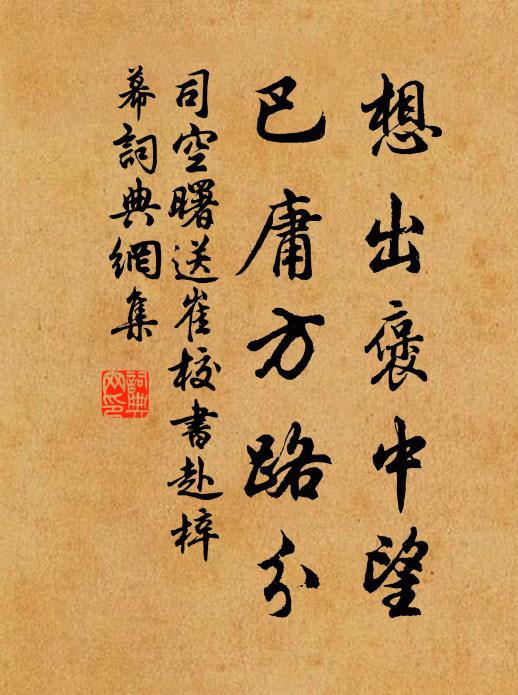 想出褒中望
巴庸方路分
司空曙送崔校書赴梓
幕詞典網集
詞典
网印